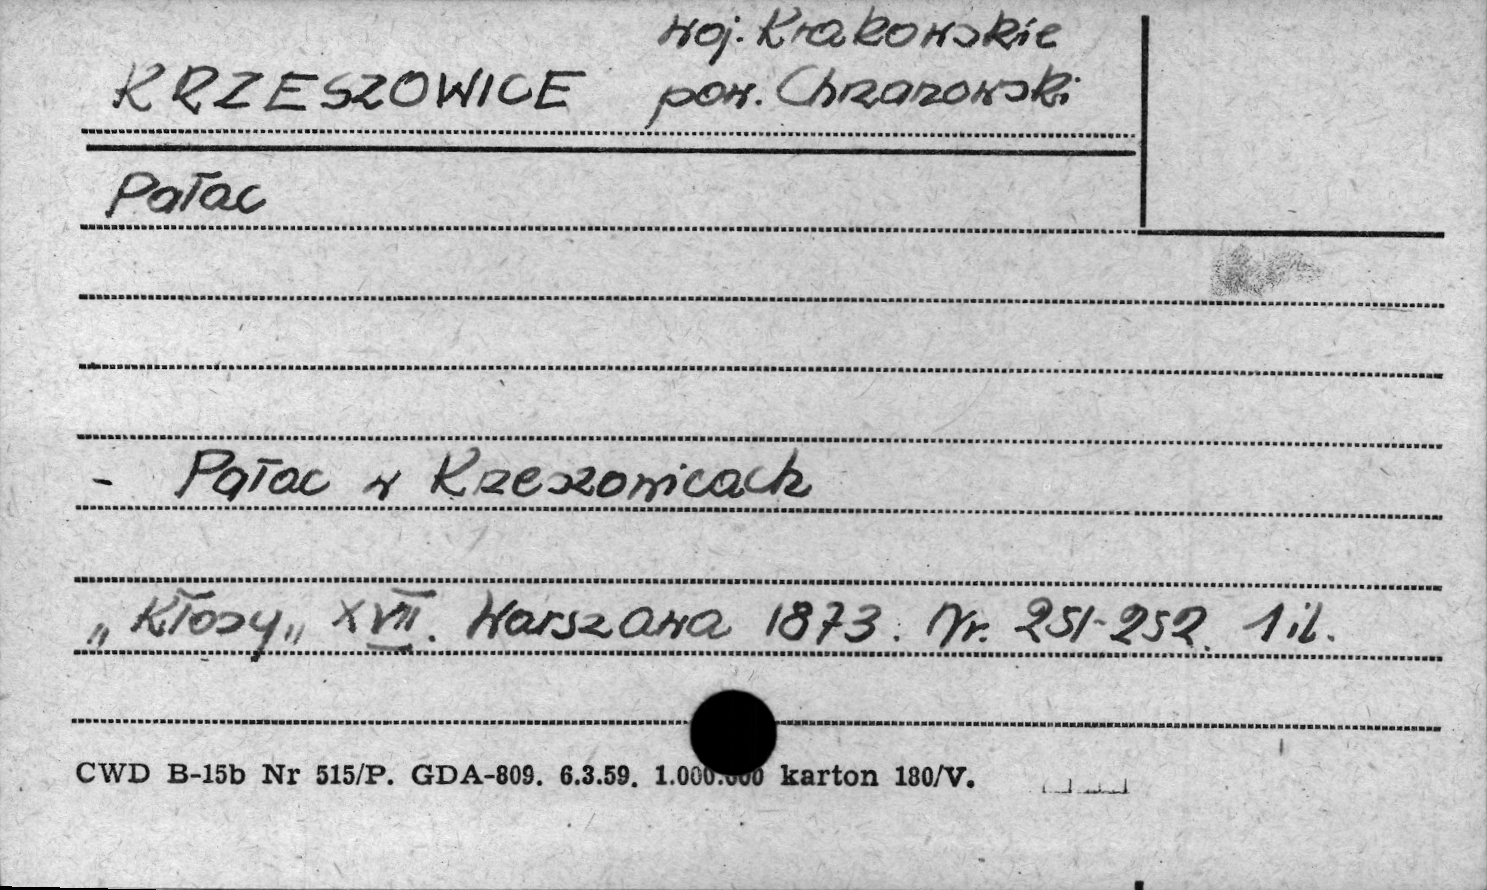 woj. Krakowskie
KRZESZOWICE pow. Chrzanowski
Pałac
- Pałac w Krzeszowicach
"Kłosy" XVII. Warszawa 1873. Nr. 251-252. 1 il.
CWD B-15b Nr 515/P. GDA-809. 6.3.59. 1.000.000 karton 180/V.